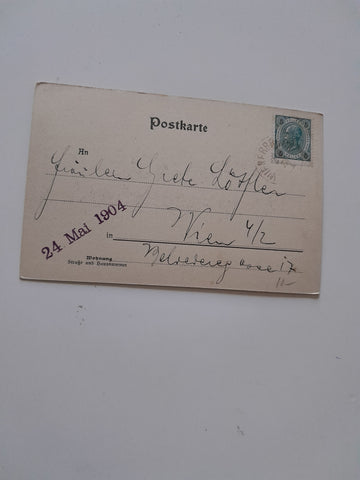 Postkarte
An
Fräulein Grete Löffler
24 Mai 1904
in Wien 4/2
Wohnung
Straße und Hausnummer
17